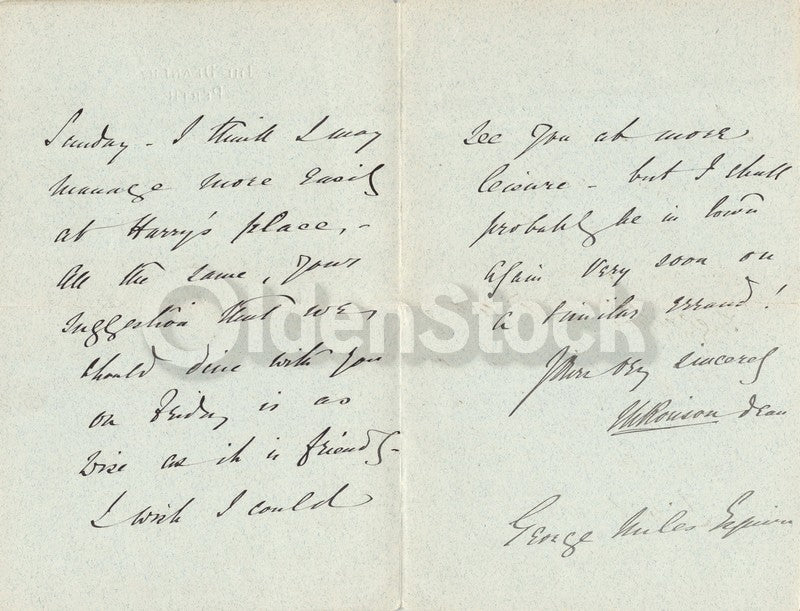 Sunday - I think I may
manage more easily
at Harry's place, -
All the same, your
suggestion that we
should dine with you
on Friday is as
wise as it is friendly -
I wish I could
see you at more
leisure - but I shall
probably be in town
again very soon on
a similar errand!
Yours very sincerely
Dean
George Miles Esquire
OldenStock